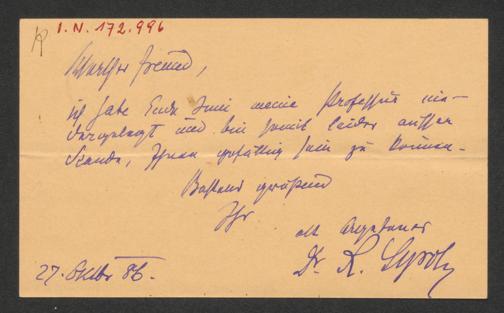 I.N. 172.996
Werther Freund,
ich habe Ende Juni meine Professur nie-
dergelegt und bin somit leider außer
Stande, Ihnen gefällig sein zu können.
Bestens grüßend
Ihr
alt ergebener
Dr. K.
27. Oktbr 86.